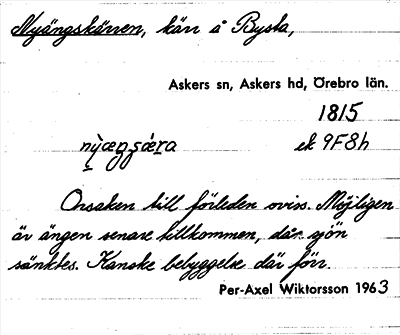 Nyängskärren, kärr å Bysta,
Askers sn, Askers hd, Örebro län.
1815
ek 9F8h
Orsaken till förleden oviss. Möjligen
är ängen senare tillkommen, där sjön
sänktes. Kanske bebyggelse där förr.
Per-Axel Wiktorsson 1963